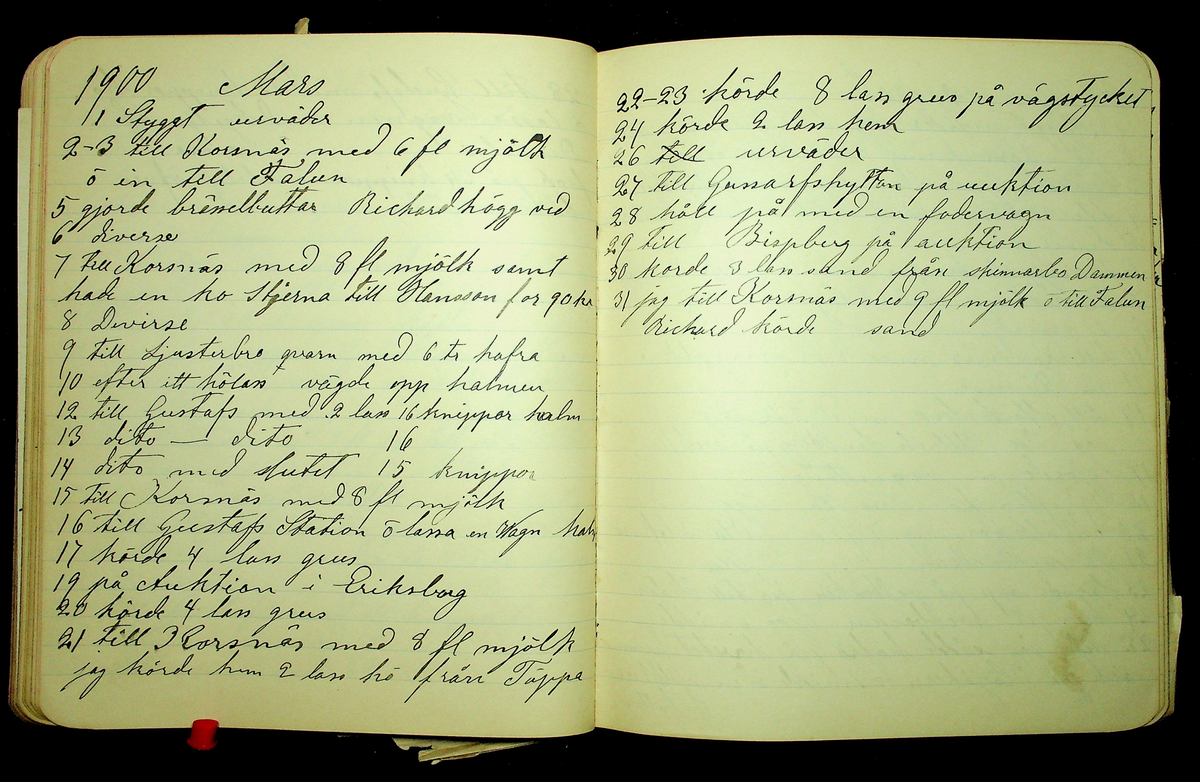 1900 Mars
1 Styggt urväder
2-3 till Korsnäs med 6 fl mjölk
ō in till Falun
5 gjorde Richard högg ved
6 diverse
7 till Korsnäs med 8 fl mjölk samt
hade en ko Stjerna till Hansson for 90 kr
8 Diverse
9 till Ljusterbro qvarn med 6 tr hafra
10 efter itt hölass vägde opp halmen
12 till Gustafs med 2 lass 16 knippor halm
13 dito — dito 16
14 dito med slutet 15 knippor
15 till Korsnäs med 8 fl mjölk
16 till Gustafs Station ō lassa en Vagn halm
17 körde 4 lass grus
19 på Auktion i Eriksborg
20 körde 4 lass grus
21 till Korsnäs med 8 fl mjölk
jag körde hem 2 lass hö från Täppa
22-23 körde 8 lass grus på vägstycket
24 körde 2 lass hem
26 till urväder
27 till Gussarfshyttan på auktion
28 höll på med en fodervagn
29 till Bispberg på auktion
30 korde 3 lass sand från skinnarbo Dammen
31 jag till Korsnäs med 9 fl mjölk ō till Falun
Richard körde sand